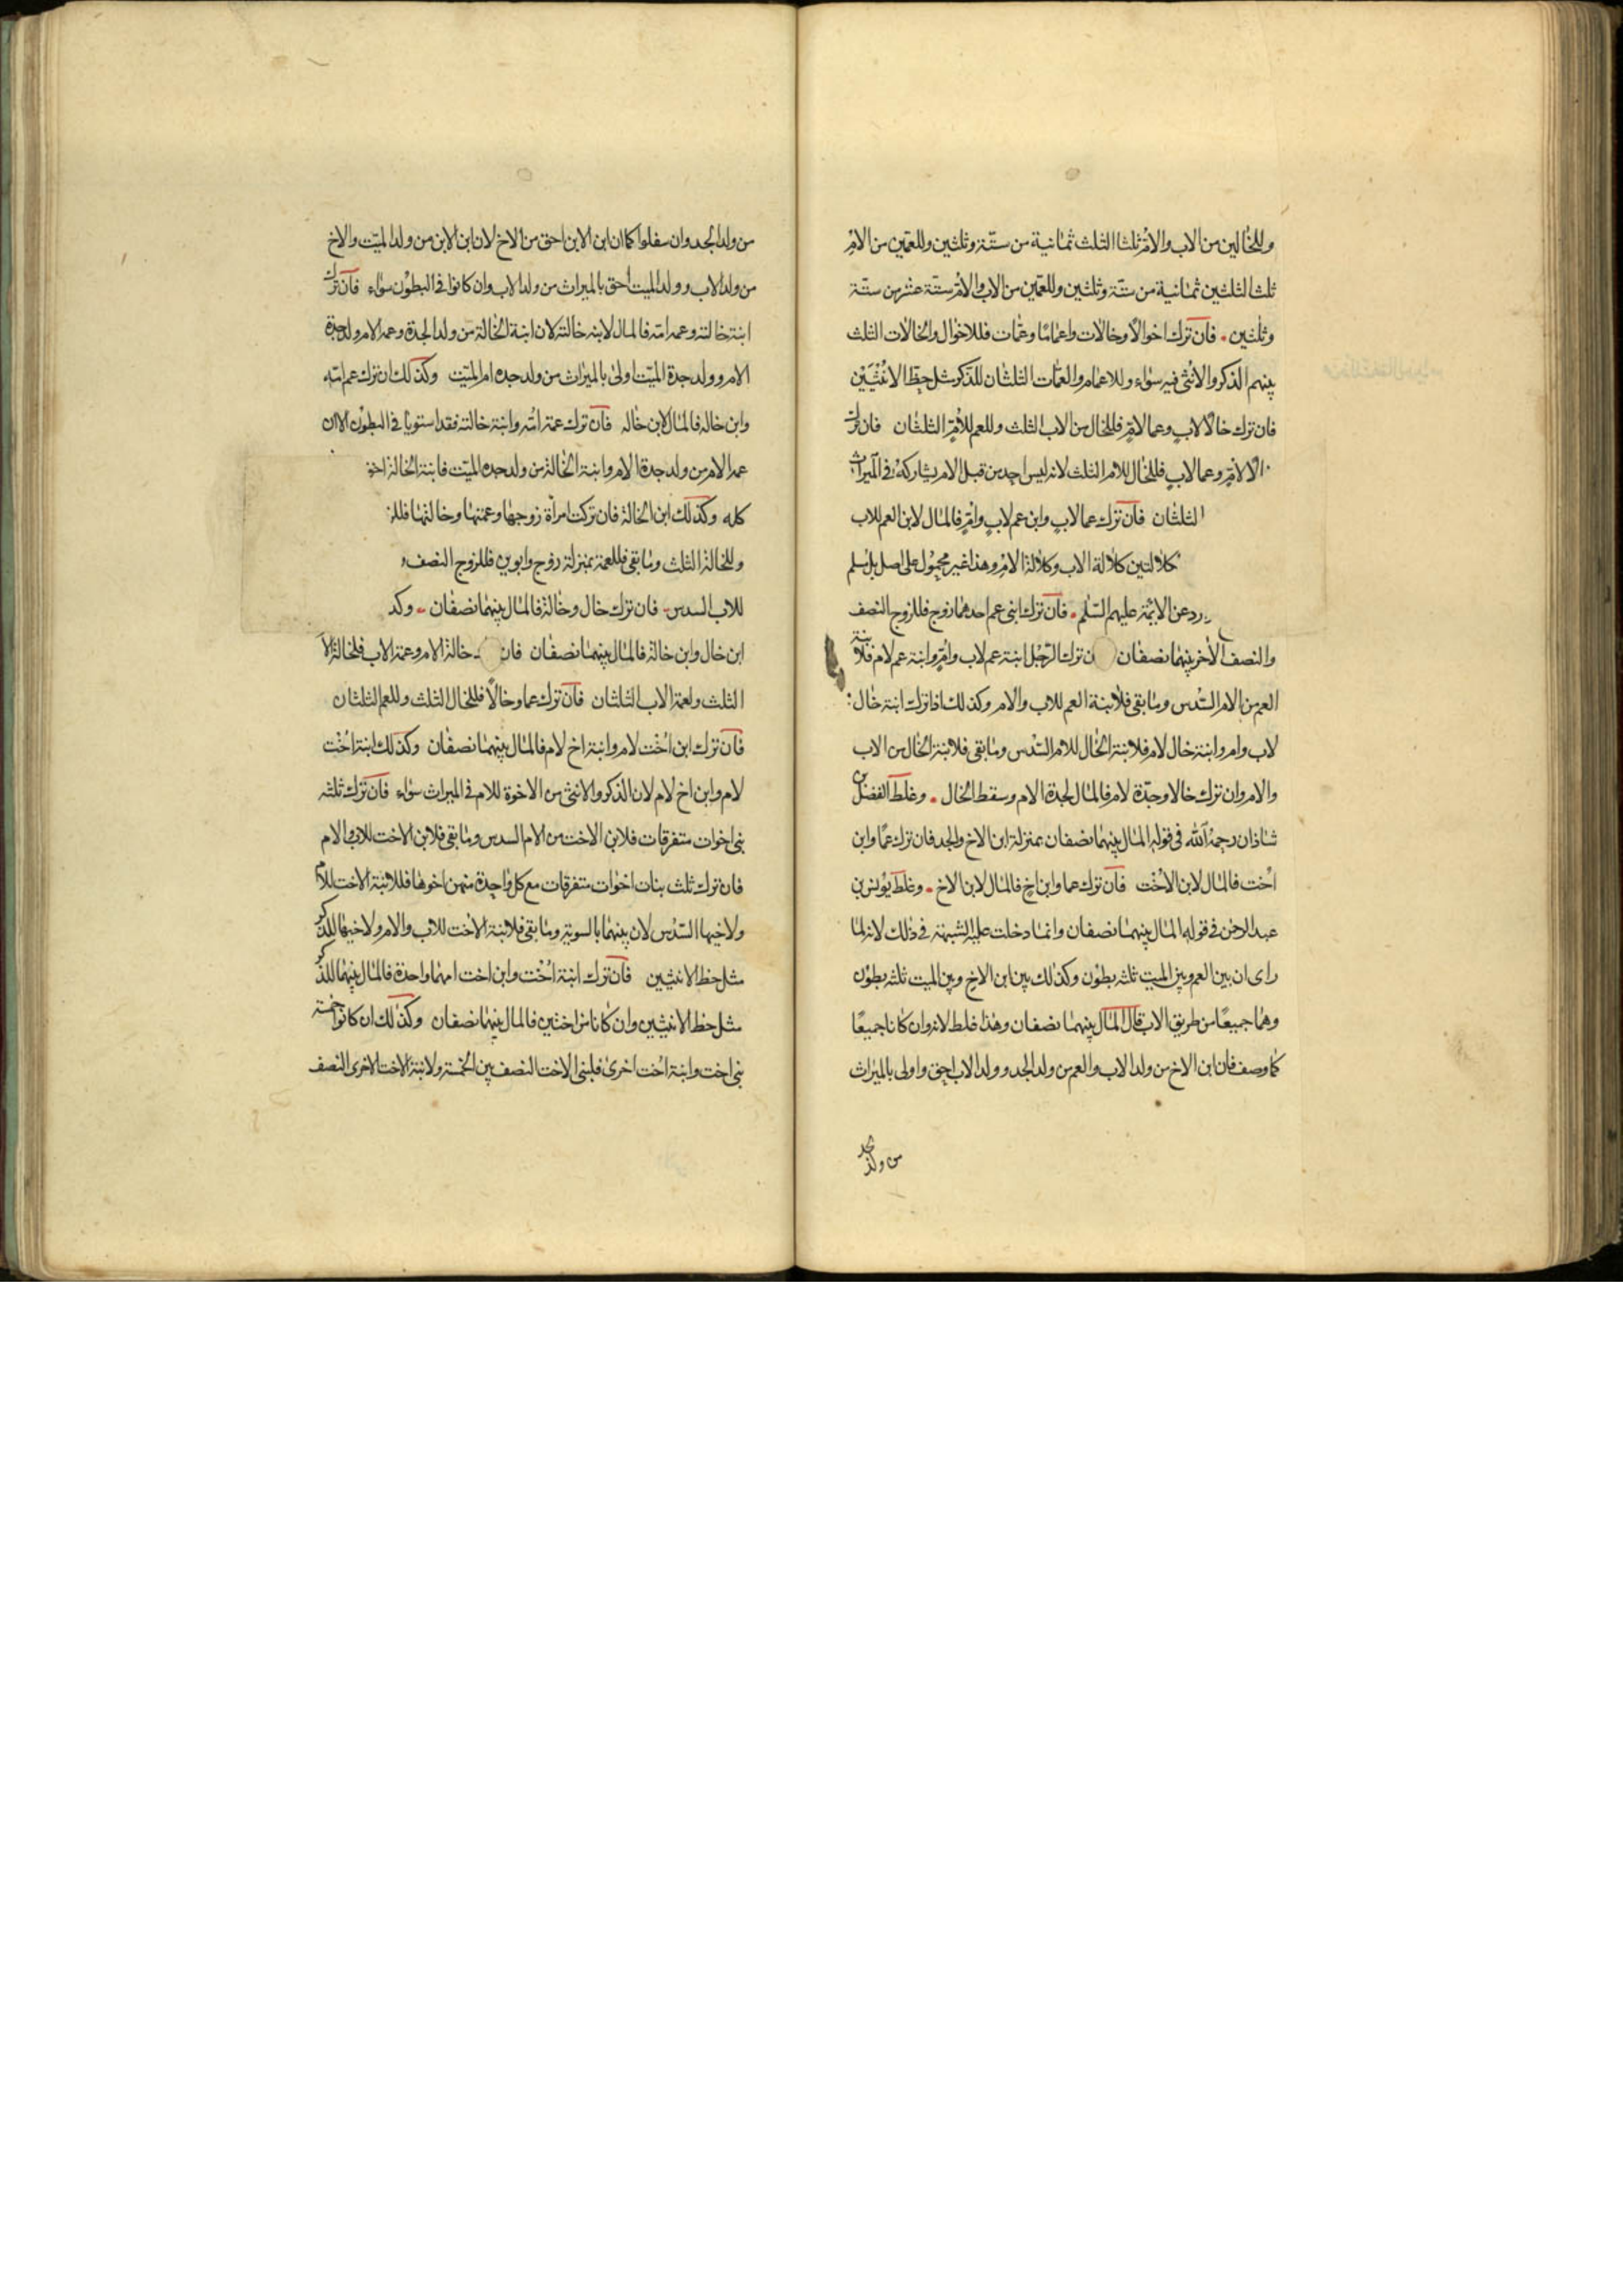 وللخالين من الاب والامّ ثلثا الثلث ثمانية من ستّة وثلثين وللعمّين من الامّ
ثلث الثلثين ثمانية من ستّة وثلثين وللعمّين من الاب والامّ ستّة عشر من ستّة
وثلثين فان ترك اخوالًا وخالات واعمامًا وعمّات فللاخوال والخالات الثلث
بينهم الذكر والانثى فيه سواء وللاعمام والعمّات الثلثان للذّكر مثل حظّ الانثيين
فان ترك خالًا لابٍ وعمًا لامّ فللخال من الاب الثلث وللعم للامّ الثلثان فان ترك
لامّ وعما لابٍ فللخال للام الثلث لانه ليس احد من قبل الام يشاركه في الميراث
الثلثان فان ترك عما لابٍ وابن عم لابٍ وامّ فالمال لابن العم للاب
كلالتين كلالة الاب وكلالة الامّ وهذا غير محمول على اصل بل مسلم
عن الائمّة عليهم السّلم فان ترك ابنى عم احدهما زوج فللزوج النصف
والنصف الاخر بينهما نصفان ترك الرّجل ابنة عم لاب وامّ وابنة عم لام فلابنة
العم من الام السّدس وما بقى فلابنة العم للاب والام وكذلك اذا ترك ابنة خال
لاب وام وابنة خال لام فلابنة الخال للام السّدس وما بقى فلابنة الخال من الاب
والام وان ترك خالا وجدّة لام فالمال لجدة الام وسقط الخال وغلط الفضل بن
شاذان رحمه الله في قوله المال بينهما نصفان بمنزلة ابن الاخ والجد فان ترك عمًا وابن
اخت فالمال لابن الاخت فان ترك عما وابن اخ فالمال لابن الاخ وغلط يونس بن
عبد الرحمن في قوله المال بينهما نصفان وانما دخلت عليه الشبهة في ذلك لانه لما
راى ان بين العم وبين الميت ثلثه بطون وكذلك بين ابن الاخ وبين الميت ثلثه بطون
وهما جميعًا من طريق الاب قال المال بينهما نصفان وهذا غلط لانه وان كانا جميعًا
كما وصف فان ابن الاخ من ولد الاب والعم من ولد الجد وولد الاب احق واولى بالميراث
من ولد الجد
من ولد الجد وان سفلوا كما ان ابن الابن احق من الاخ لان ابن الابن من ولد الميّت والاخ
من ولد الاب وولد الميت احق بالميراث من ولد الاب وان كانوا في البطون سواء فان ترك
ابنة خالته وعم امه فالمال لابنه خالته لان ابنة الخالة من ولد الجدة وعم الام ولد جدة
الام وولد جدة الميّت اولى بالميراث من ولد جده ام الميّت وكذلك ان ترك عم امّه
وابن خاله فالمال لابن خاله فان ترك عمة امّه وابنة خالته فقد استويا في البطون الا ان
عمة الام من ولد جدة الام وابنة الخالة من ولد جده الميّت فابنة الخالة احق
كله وكذلك ابن الخالة فان تركت امراة زوجها وعمتها وخالتها
وللخالة الثلث وما بقى فللعمة بمنزلة زوج وابوين فللزوج النصف
للاب السدس فان ترك خال وخالة فالمال بينهما نصفان
ابن خال وابن خالة فالمال بينهما نصفان فان خالة الام وعمة الاب فلخالة الا
الثلث ولعمة الاب الثلثان فان ترك عما وخالًا فللخال الثلث وللعم الثلثان
فان ترك ابن اخت لام وابنة اخ لام فالمال بينهما نصفان وكذلك ابنة اخت
لام وابن اخ لام لان الذكر والانثى من الاخوة للام في الميراث سواء فان ترك ثلثه
بنى اخوات متفرقات فلابن الاخت من الام السدس وما بقى فلابن الاخت للاب والام
فان ترك ثلث بنات اخوات متفرقات مع كل واحدة منهن اخوها فللابنة الاخت للام
ولاخيها السّدس لان بينهما بالسوية وما بقى فلابنة الاخت للاب والام ولاخيها للذكر
مثل حظ الانثيين فان ترك ابنة اخت وابن اخت امهما واحدة فالمال بينهما للذكر
مثل حظ الانثيين وان كانا من اختين فالمال بينهما نصفان وكذلك ان كانوا خمسة
بنى اخت وابنة اخت اخرى فلبنى الاخت النصف بين الخمسة ولابنة الاخت الاخرى النصف